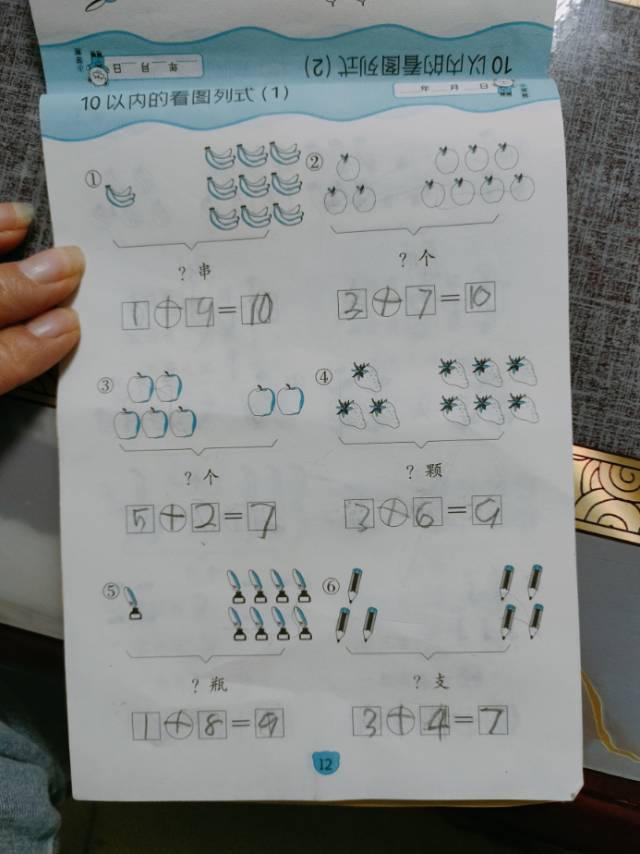 10以内的看图列式(2)
年 月 日
10以内的看图列式(1)
年 月 日
① ②
?串 ?个
1+9=10 3+7=10
③ ④
?个 ?颗
5+2=7 3+6=9
⑤ ⑥
?瓶 ?支
1+8=9 3+4=7
12